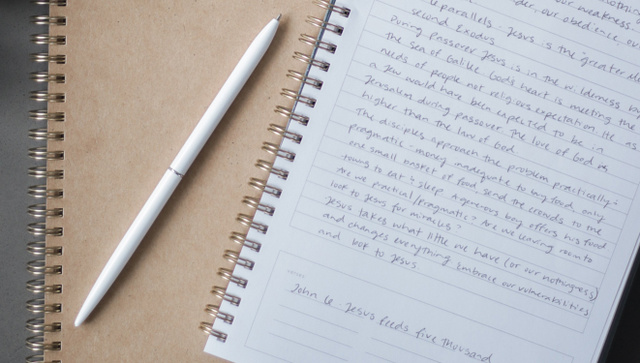 our weakness
our obedience
parallels. Jesus is the "greater
second Exodus
During passover Jesus is in the wilderness by
the sea of Galilee. God's heart is meeting the
needs of people not religious expectation. He as
a Jew would have been expected to be in
Jerusalem during passover. The love of God is
higher than the law of God
The disciples approach the problem practically:
pragmatic - money inadequate to buy food, only
one small basket of food, send the crowds to the
towns to eat & sleep. A generous boy offers his food
Are we practical/pragmatic? Are we leaving room to
look to Jesus for miracles?
Jesus takes what little we have (or our nothingness)
and changes everything. Embrace our vulnerabilities
and look to Jesus
NOTES
John 6 - Jesus feeds five thousand